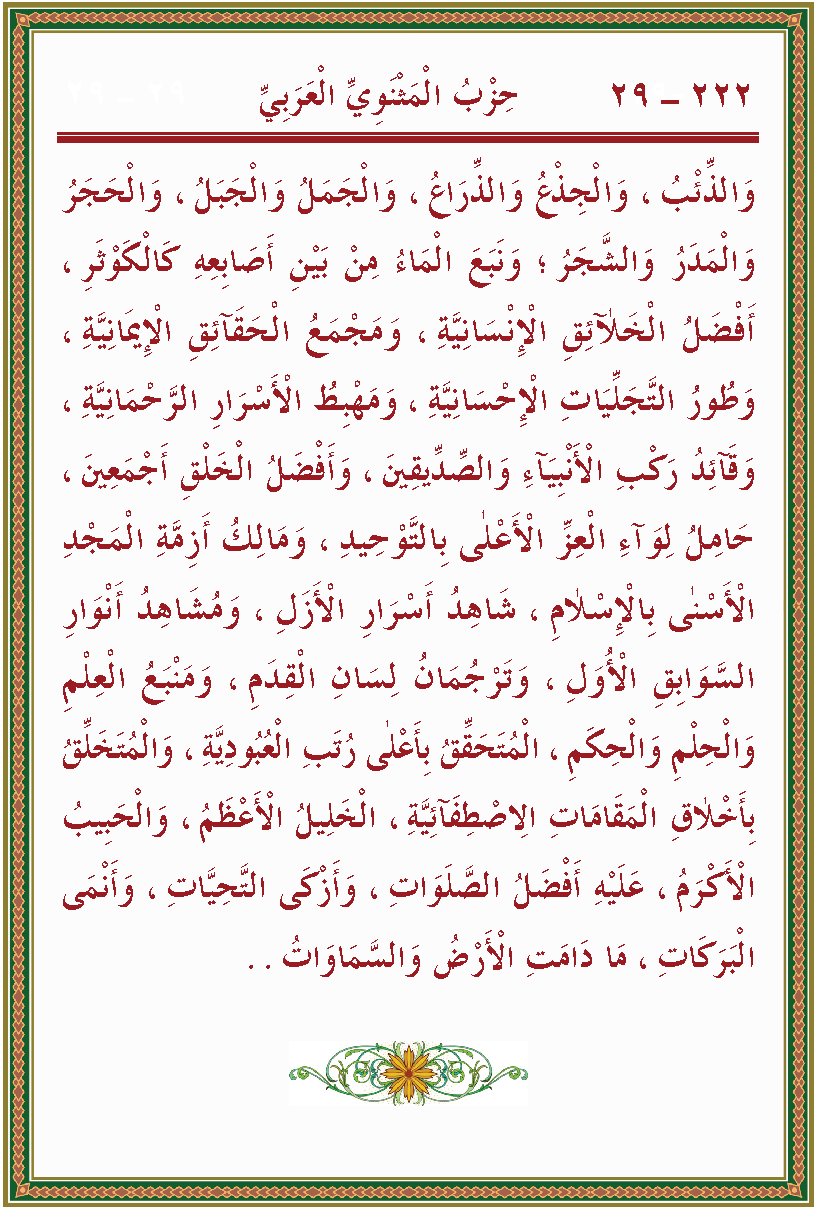 ٢٢٢ – ٢٩ حِزْبُ الْمَثْنَوِيِّ الْعَرَبِيِّ
وَالذِّئْبُ ، وَالْجِذْعُ وَالذِّرَاعُ ، وَالْجَمَلُ وَالْجَبَلُ ، وَالْحَجَرُ
وَالْمَدَرُ وَالشَّجَرُ ؛ وَنَبَعَ الْمَاءُ مِنْ بَيْنِ أَصَابِعِهِ كَالْكَوْثَرِ ،
أَفْضَلُ الْخَلَٓائِقِ الْإِنْسَانِيَّةِ ، وَمَجْمَعُ الْحَقَٓائِقِ الْإِيمَانِيَّةِ ،
وَطُورُ التَّجَلِّيَاتِ الْإِحْسَانِيَّةِ ، وَمَهْبِطُ الْأَسْرَارِ الرَّحْمَانِيَّةِ ،
وَقَٓائِدُ رَكْبِ الْأَنْبِيَٓاءِ وَالصِّدِّيقِينَ ، وَأَفْضَلُ الْخَلْقِ أَجْمَعِينَ ،
حَامِلُ لِوَٓاءِ الْعِزِّ الْأَعْلٰى بِالتَّوْحِيدِ ، وَمَالِكُ أَزِمَّةِ الْمَجْدِ
الْأَسْنٰى بِالْإِسْلَامِ ، شَاهِدُ أَسَرَارِ الْأَزَلِ ، وَمُشَاهِدُ أَنْوَارِ
السَّوَابِقِ الْأُوَلِ ، وَتَرْجُمَانُ لِسَانِ الْقِدَمِ ، وَمَنْبَعُ الْعِلْمِ
وَالْحِلْمِ وَالْحِكَمِ ، الْمُتَحَقِّقُ بِأَعْلٰى رُتَبِ الْعُبُودِيَّةِ ، وَالْمُتَخَلِّقُ
بِأَخْلَاقِ الْمَقَامَاتِ الِاصْطِفَٓائِيَّةِ ، الْخَلِيلُ الْأَعْظَمُ ، وَالْحَبِيبُ
الْأَكْرَمُ ، عَلَيْهِ أَفْضَلُ الصَّلَوَاتِ ، وَأَزْكَى التَّحِيَّاتِ ، وَأَنْمَى
الْبَرَكَاتِ ، مَا دَامَتِ الْأَرْضُ وَالسَّمَاوَاتُ . .